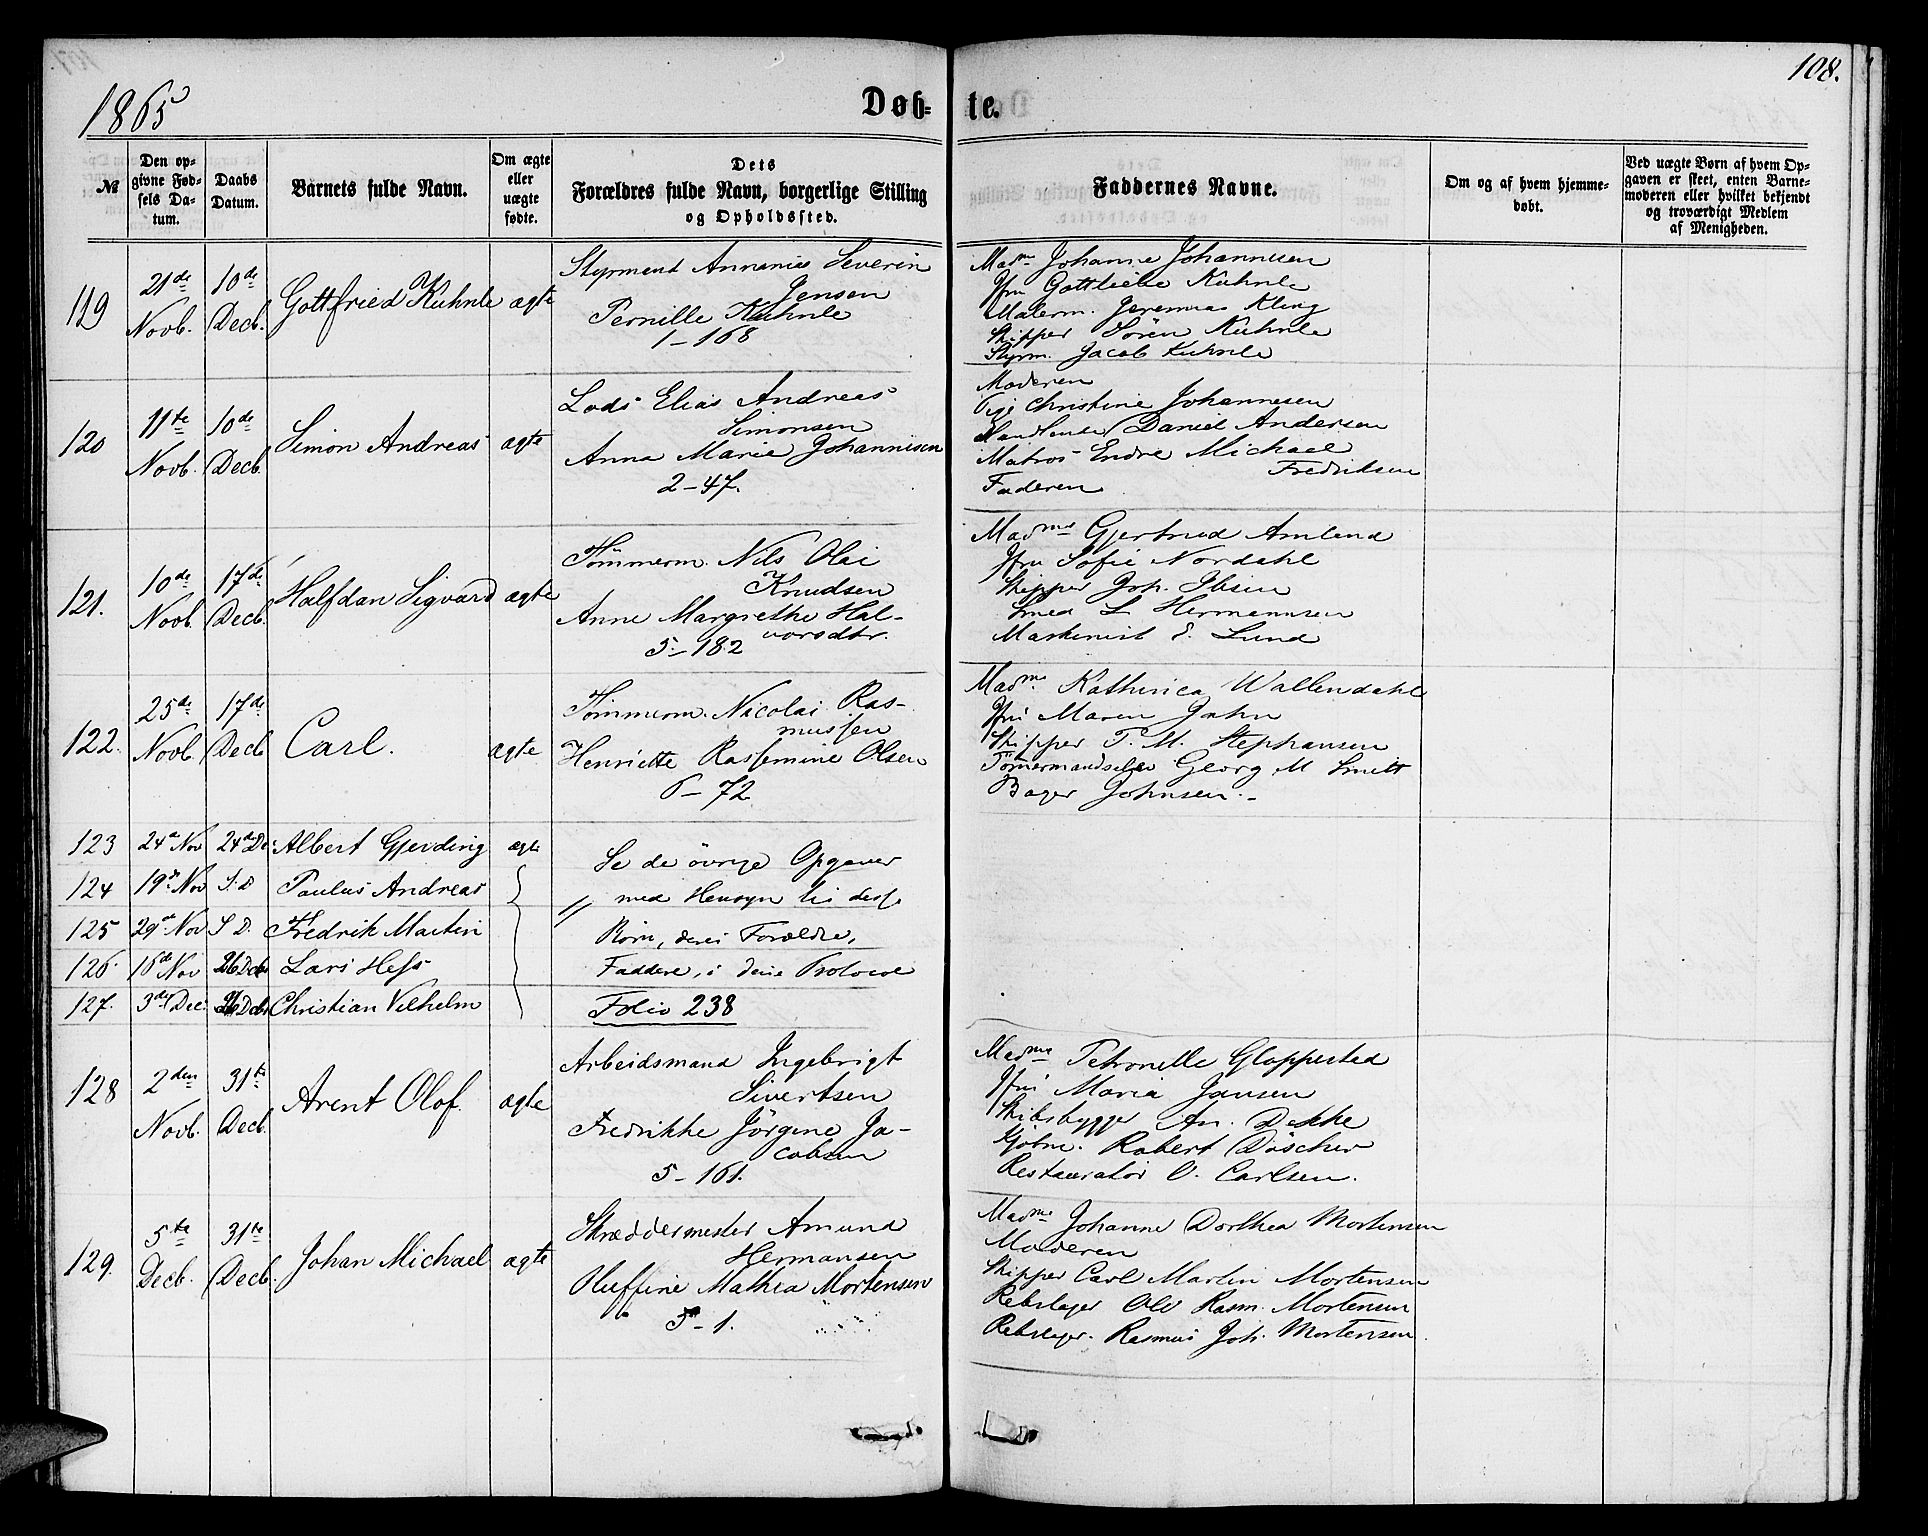 1865
Døb-
te.
108.
№
Den op-
givne Fød-
sels Da-
tum.
Daabs
Datum.
Barnets fulde Navn.
Om ægte
eller
uægte
fødte.
Dets
Forældres fulde Navn, borgerlige Stilling
og Opholdssted.
Faddernes Navne.
Om og af hvem hjemme-
døbt.
Ved uægte Børn af hvem Op-
gaven er skeet, enten Barne-
moderen eller hvilket bekjendt
og troværdigt Medlem
af Menigheden.
119
21de
Novb.
10de
Decb.
Gottfried Kuhnle
ægte
Styrmand Annanias Severin
Jensen
Pernille Kuhnle
1-168
Madm Johanne Johannesen
Jfru Gottliebe Kuhnle
Malerm. Jeremias Kling
Skipper Sören Kuhnle
Styrm. Jacob Kuhnle
120
11te
Novb.
10de
Decb.
Simon Andreas
ægte
Lods Elias Andreas
Simonsen
Anna Marie Johannesen
2-47.
Moderen
Pige Christine Johannesen
Daniel Andersen
Matros Endre Michael
Fredriksen
Faderen
121.
10de
Novb.
17de
Decb.
Halfdan Sigvard
ægte
Tömmerm. Nils Olai
Knudsen
Anne Margrethe Hal-
vorsdtr.
5-182
Madme Gjertrud Amlund
Jfru Sofie Nordahl
Skipper Joh. Ibsen
Smed L Hermannsen
Maskinist E. Lund
122.
25de
Novb.
17de
Decb
Carl.
ægte
Tömmerm. Nicolai Ras-
mussen
Henriette Rassemine Olsen
6-72
Madme Kathinca Wallendahl
Jfru Maren Jahn
Skipper T. M. Stephansen
Georg M Smitt
Bager Johnsen.
123
24de Nov
24de De
Albert Gjerding
ægte
Se de övrige Opgaver
124
19de Nov
S. D
Paulus Andreas
med Hensyn til disse
125
29de Nov
S D.
Fredrik Martin
Börn, deres Forældre,
126.
16de Nov
26 Decb
Lars Hess
Faddere, i denne Protocol
127.
3de Dec.
26 Decb
Christian Vilhelm
Folio 238
128
2den
Novb.
31te
Decb.
Arent Olof.
ægte
Arbeidsmand Ingebrigt
Sivertsen
Fredrikke Jörgine Ja-
cobsen
5-161.
Madme Petronelle Gloppestad
Jfru Maria Jansen
Skibsbygger An. Dekke
Kjöbm. Robert Döscher
Restauratör O. Carlsen.
129.
5te
Decb.
31te
Decb.
Johan Michael
ægte
Skræddermester Amund
Hermansen
Mathea Mortensen
5-1.
Madme Johanne Dorthea Mortensen
Moderen
Skipper Carl Martin Mortensen
Rebslager Ole Rasm. Mortensen
Rebslager. Rasmus Joh. Mortensen